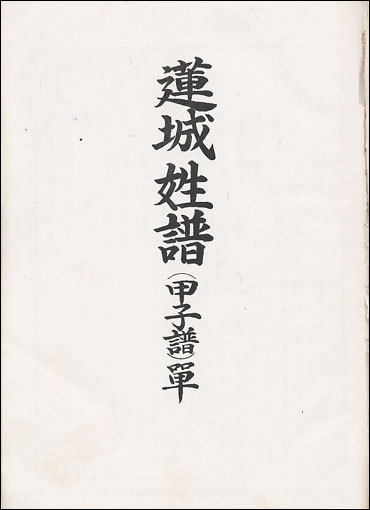 蓮城姓譜(甲子譜)單